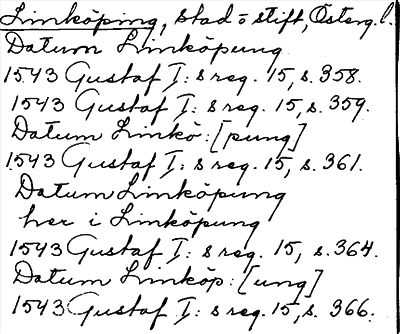 Linköping, stad o stift, Österg.l.
Datum Linköpung
1543 Gustaf I: s reg. 15, s. 358.
1543 Gustaf I: s reg. 15, s. 359.
Datum Linkö: [pung]
1543 Gustaf I: s reg. 15, s. 361.
Datum Linköpung
her i Linköpung
1543 Gustaf I: s reg. 15, s. 364.
Datum Linköp: [ung]
1543 Gustaf I: s reg. 15, s. 366.